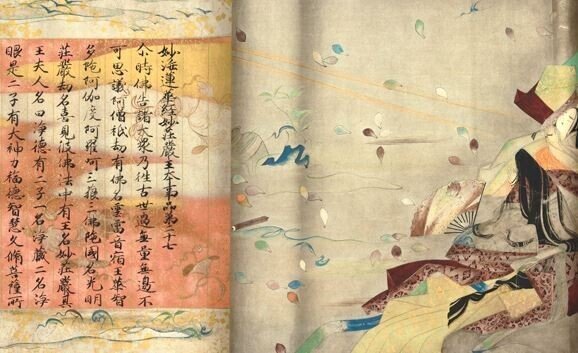 妙法蓮華經妙莊嚴王本事品第二十七
尒時佛告諸大衆乃往古世過無量無邊不
可思議阿僧祇劫有佛名雲雷音宿王華智
多陀阿伽度阿羅呵三藐三佛陀國名光明
莊嚴劫名喜見彼佛法中有王名妙莊嚴其
王夫人名曰淨德有二子一名淨藏二名淨
眼是二子有大神力福德智慧久脩菩薩所